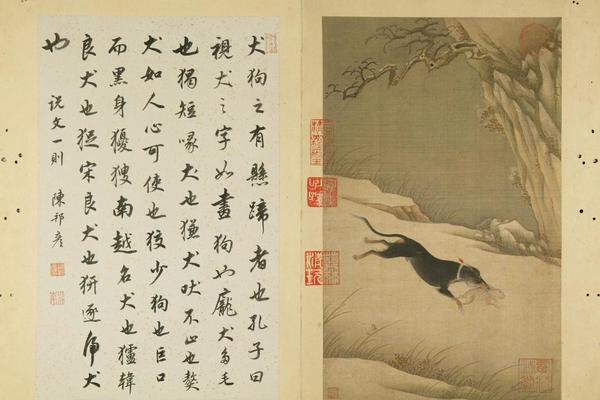 犬狗之有懸蹄者也孔子曰
視犬之字如畫狗也龐犬多毛
也猲短喙犬也㺌犬吠不止也獒
犬如人心可使也狡少狗也巨口
而黑身獿獀南越名犬也獹韓
良犬也宋良犬也逐虎犬
也
說文一則
陳邦彥